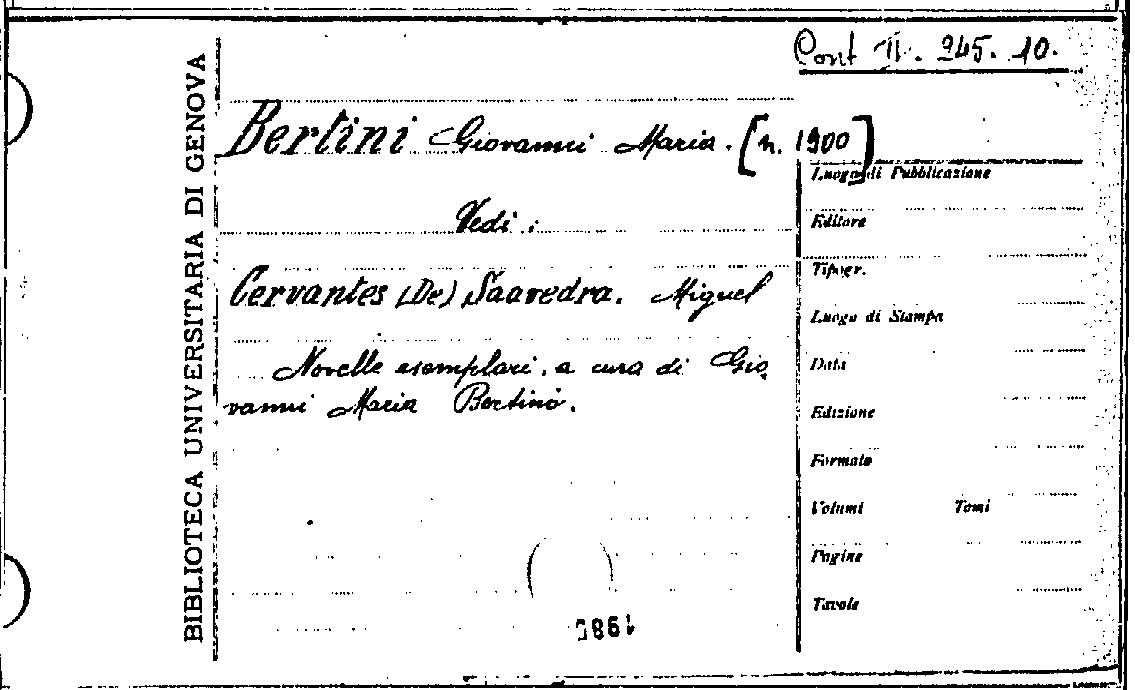 Cont II. 245. 10.
BIBLIOTECA UNIVERSITARIA DI GENOVA
Bertini Giovanni Maria. [n. 1900]
Vedi:
Cervantes (De) Saavedra. Miguel
Novelle esemplari, a cura di Gio
vanni Maria Bertini.
Luogo di Pubblicazione
Editore
Tipogr.
Luogo di Stampa
Data
Edizione
Formato
Volumi Tomi
Pagine
Tavole